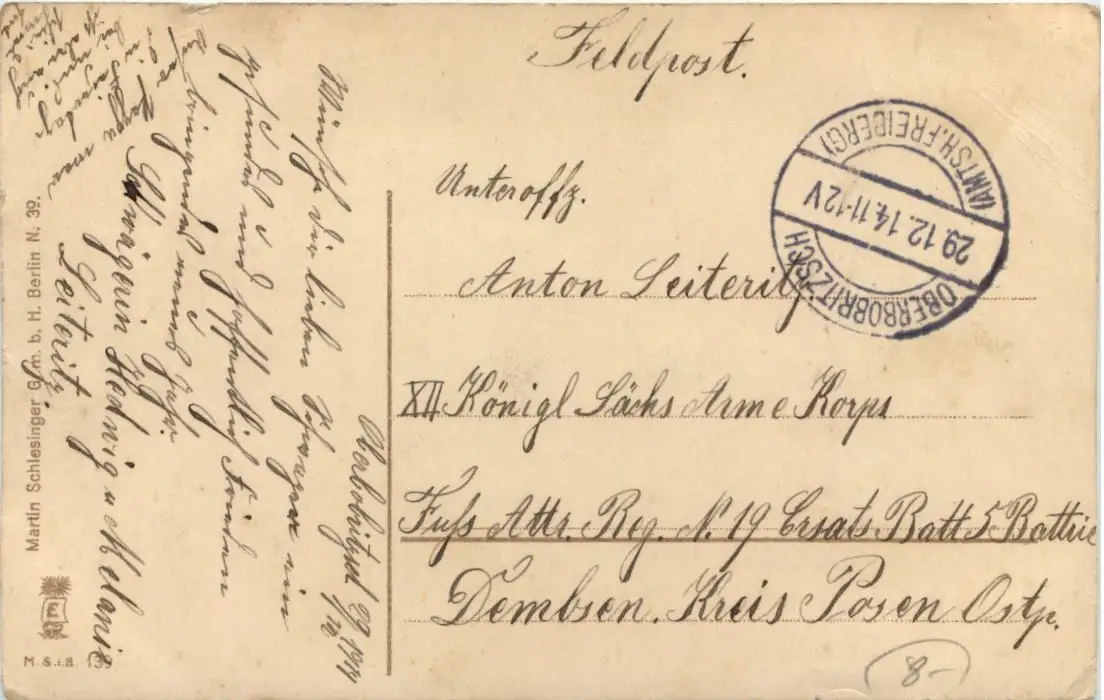 Feldpost.
Unteroffz.
Anton Leiteritz
XII Königl Sächs Arme Korps
Fuss Attr. Reg. N. 19 Ersats Batt 5 Battrie
Dembsen. Kreis Posen Ostp.
OBERBOBRITZSCH
(AMTSH. FREIBERG)
29.12.14.11-12V
Oberbobritzsch 29/12 1914
Wünsche dir lieben Schwager ein
gesundes und hoffendlich Frieden
bringendes neues Jahr.
Schwägerin Hedwig u Melanie
Leiteritz.
Martin Schlesinger G.m.b.H. Berlin N. 39.
M.S.i.B. 139
8-